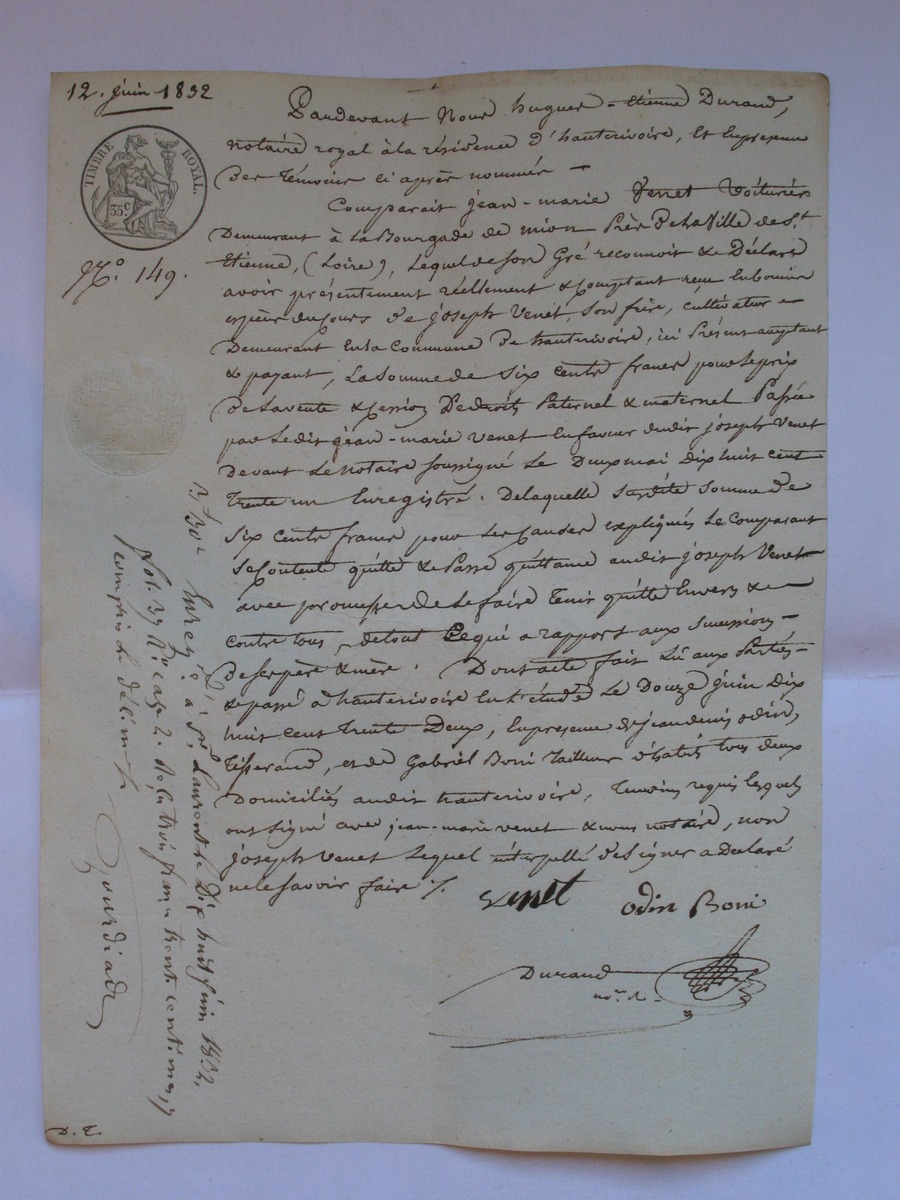 12. juin 1832
TIMBRE ROYAL.
35 c
N.o 149.
Pardevant Nous hugues-Etienne Durand,
notaire royal à la résidence d'hauterivoire, et En presence
Des Témoins ci après nommés —
Comparait jean-marie Venet Voiturier
Demeurant à La Bourgade de mion Près De la Ville de St.
Etienne, (Loire), Lequel de son Gré reconnoit & Déclare
avoir présentement réellement & comptant reçu En bonnes
espèces du cours de joseph Venet, son frère, cultivateur —
Demeurant En la Commune De hauterivoire, ici Présent acceptant
& payant, La Somme de Six Cents francs pour le prix
De la vente & Cession De droits Paternel & maternel Passée
par Le dit jean-marie Venet En faveur dudit joseph Venet
Devant Le Notaire soussigné Le Deux mai Dix huit cent
Trente un Enregistré. De laquelle susdite Somme de
Six Cents francs pour Les Causes expliquées Le Comparant
Se Contente quitte & Passe quittance audit joseph Venet
avec promesse de Le faire Tenir quitte Envers & —
contre tous, de tout Ce qui a rapport aux Succession —
De ses père & mère. Dont acte fait Lu aux Parties —
& passé à hauterivoire En L'étude Le Douze juin Dix
huit Cent Trente Deux, En presence de jean denis odin,
Tisserand, et de Gabriel Boni Tailleur D'habits tous deux
Domiciliés audit hauterivoire, Temoins requis Lesquels
ont Signé avec jean-marie venet & nous notaire, non
joseph Venet Lequel interpellé de Signer a Déclaré
ne le Savoir faire /.
Venet odin Boni
Durand
no.re R.
3f 30c Enreg.é à St. Laurent le Dix huit juin 1832.
fol. 37 R.o case 2. Reçu trois francs trente centimes, y
compris le décime
D. T.